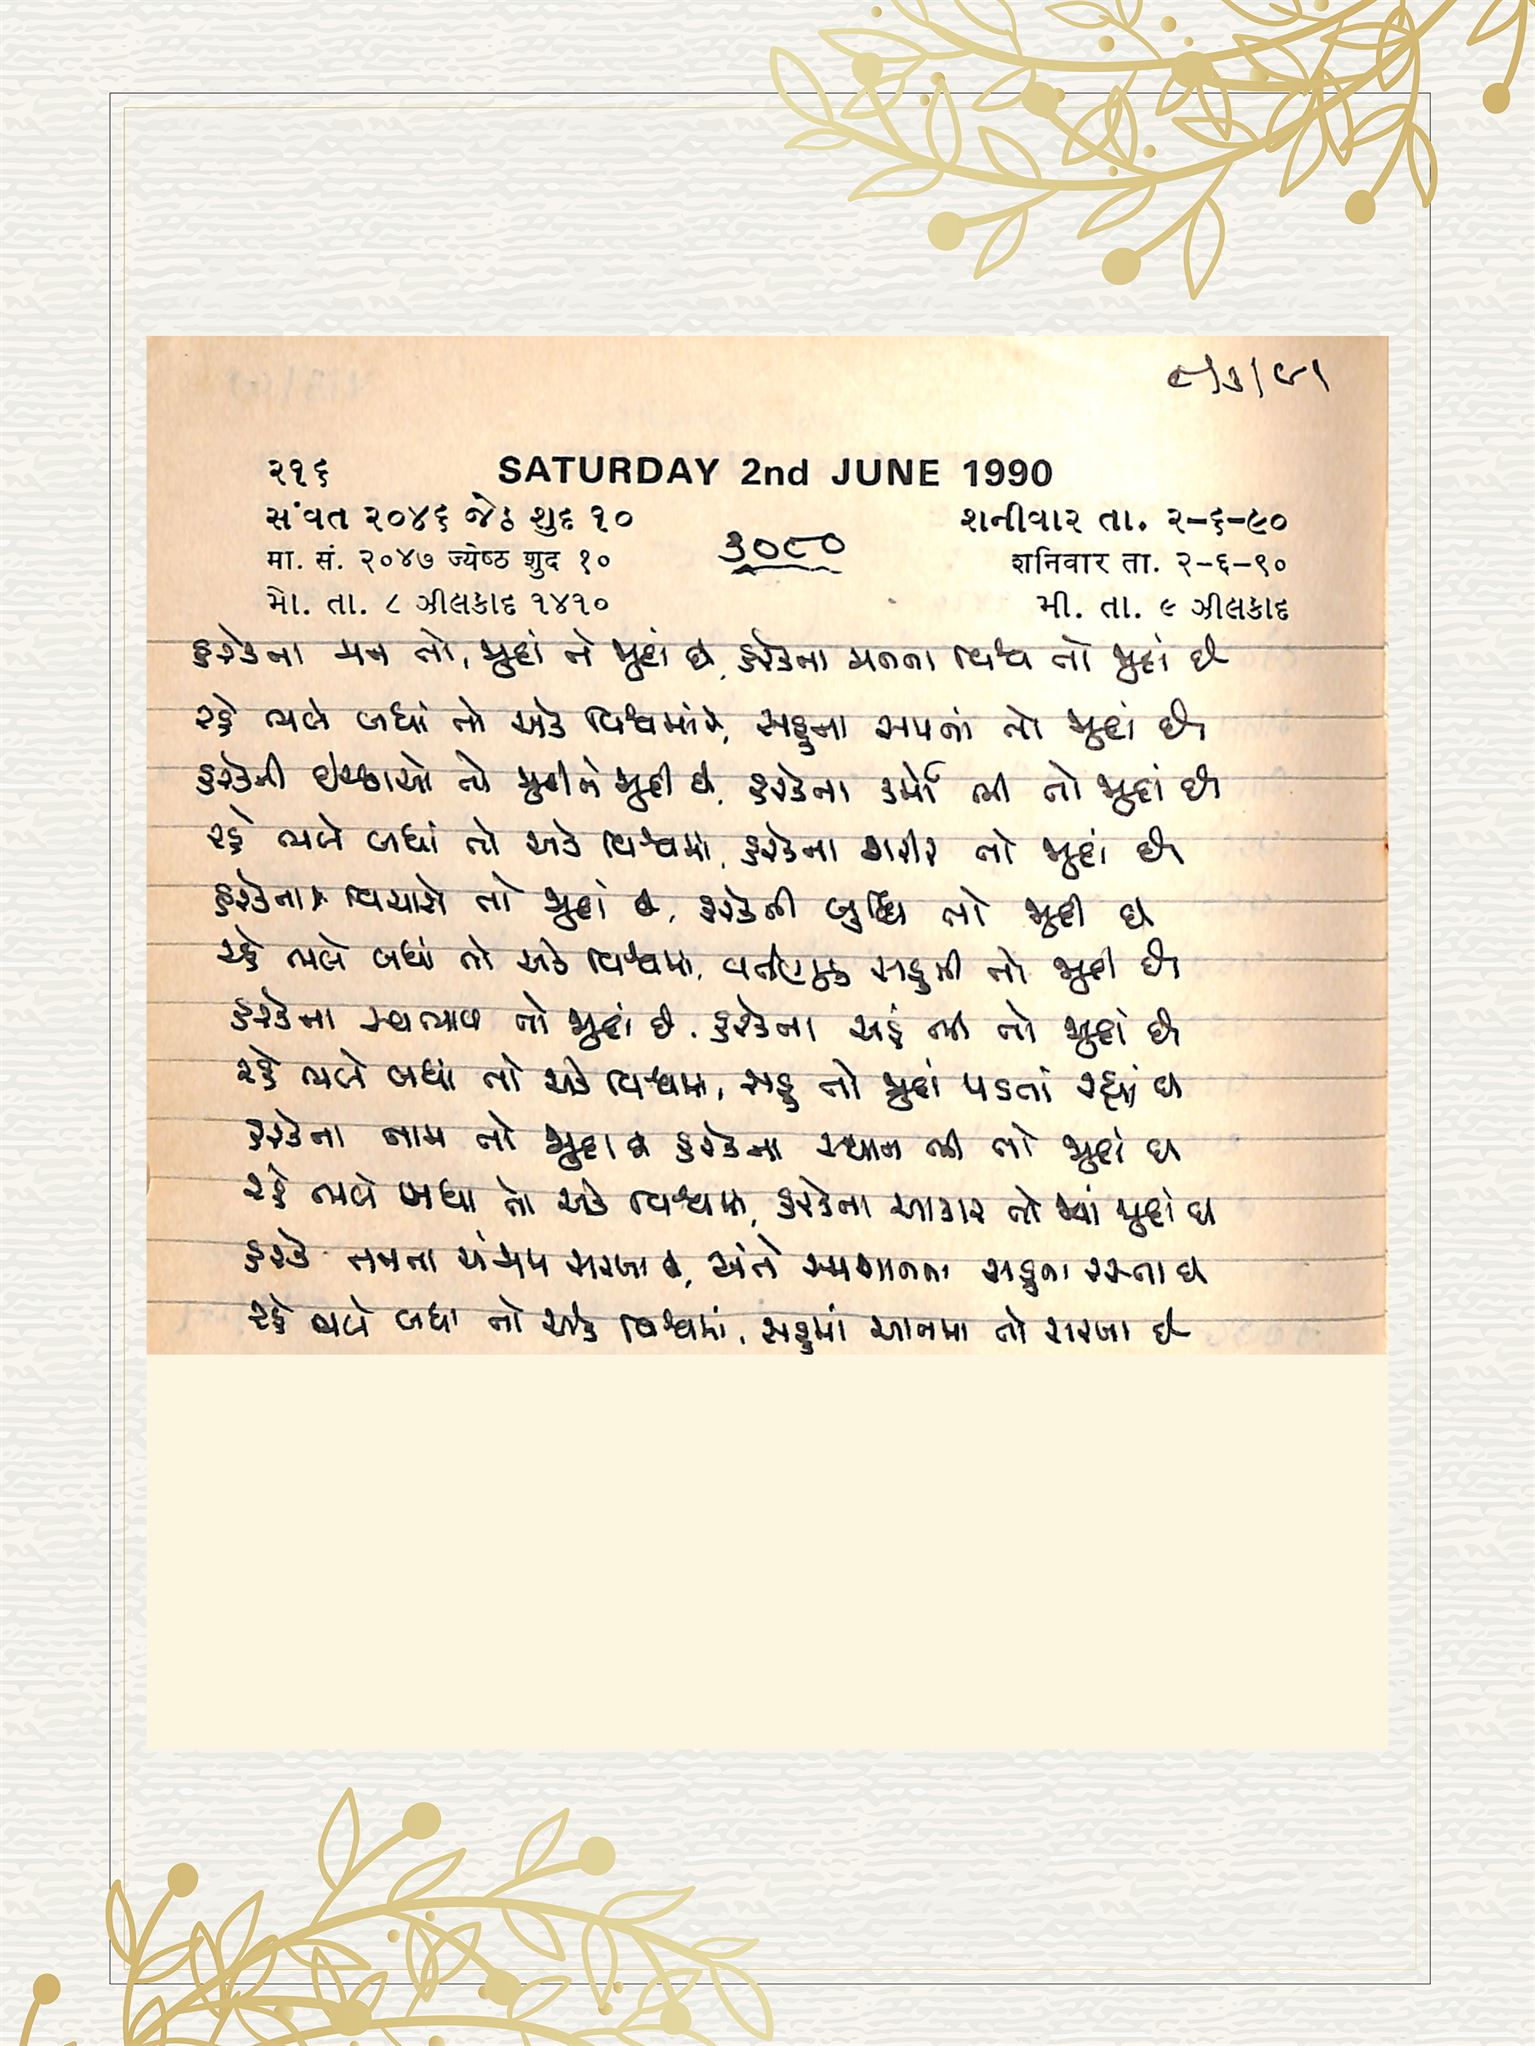 ૮/૩/૯૧
૨૧૬ SATURDAY 2nd JUNE 1990
સંવત ૨૦૪૬ જેઠ શુદ ૧૦ શનીવાર તા. ૨-૬-૯૦
૩૦૮૦
मा. सं. २०४७ ज्येष्ठ शुद १० शनिवार ता. २-६-९०
મો. તા. ૮ ઝીલકાદ ૧૪૧૦ મી. તા. ૯ ઝીલકાદ
હરેકના મન તો, જુદાં ને જુદાં છે, હરેકના મનના વિશ્વ તો જુદાં છે
રહે ભલે બધાં તો એક વિશ્વમાં રે, સહુના સપનાં તો જુદાં છે
હરેકની ઇચ્છાઓ તો જુદી ને જુદી છે, હરેકના કર્મો ભી તો જુદાં છે
રહે ભલે બધાં તો એક વિશ્વમાં, હરેકના શરીર તો જુદાં છે
હરેકના વિચારો તો જુદાં છે, હરેકની બુદ્ધિ તો જુદી છે
રહે ભલે બધાં તો એક વિશ્વમાં, વર્તણૂક સહુની તો જુદી છે
હરેકના સ્વભાવ તો જુદાં છે, હરેકના અહં ભી તો જુદાં છે
રહે ભલે બધાં તો એક વિશ્વમાં, સહુ તો જુદાં પડતાં રહ્યાં છે
હરેકના નામ તો જુદા છે હરેકના સ્થાન ભી તો જુદાં છે
રહે ભલે બધા તો એક વિશ્વમાં, હરેકના આકાર તો જ્યાં જુદાં છે
હરેક તનના પંચમ સરખા છે, અંતે સ્મશાનના સહુના રસ્તા છે
રહે ભલે બધા તો એક વિશ્વમાં, સહુમાં આતમા તો સરખા છે